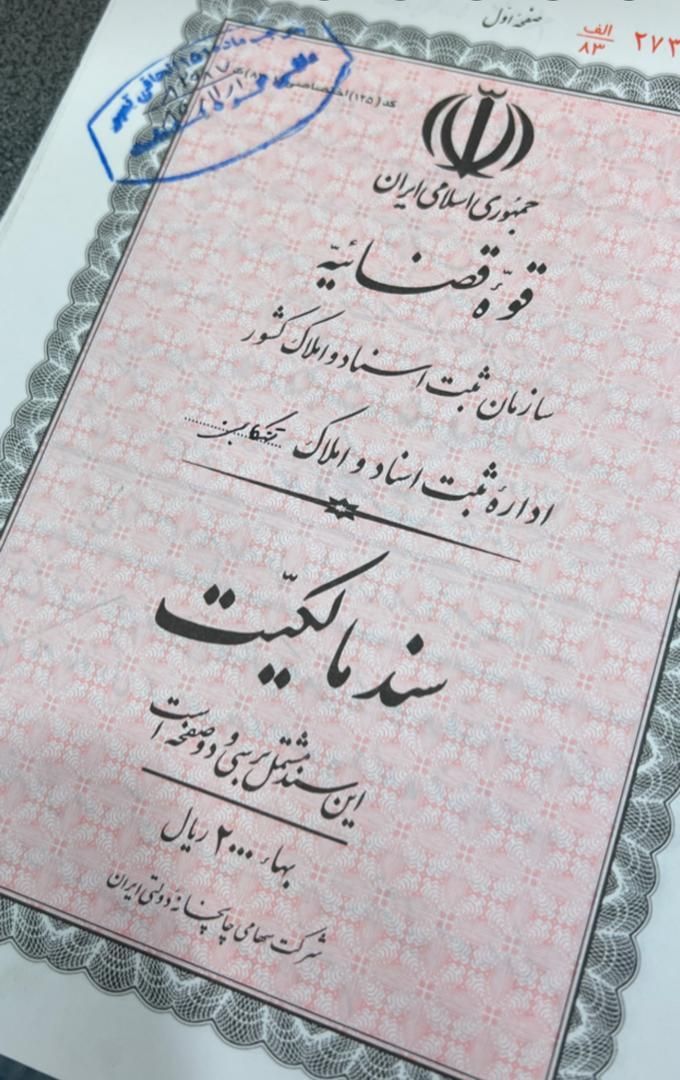 صفحهٔ اول
الف
۸۳
۲۷۳
کد (۱۲۵) اختصاصی
جمهوری اسلامی ایران
قوّهٔ قضائیّه
سازمان ثبت اسناد و املاک کشور
ادارهٔ ثبت اسناد و املاک تنکابن
سند مالکیّت
این سند مشتمل بر سی و دو صفحه است
بهاء ۲۰۰۰ ریال
شرکت سهامی چاپخانه دولتی ایران